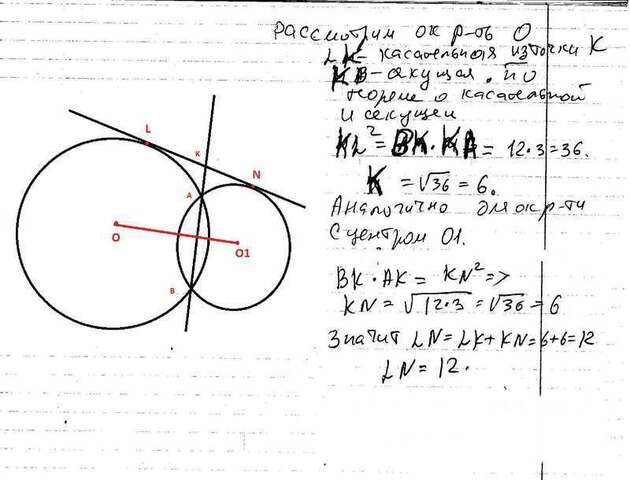 Рассмотрим окр-ть O
LK - касательная из точки K
KB - секущая. по
теореме о касательной
и секущей
KL² = BK·KA = 12·3=36.
K = √36 = 6.
Аналогично для окр-ти
с центром O1.
BK·AK = KN² =>
KN = √12·3 = √36 = 6
Значит LN = LK + KN = 6+6=12
LN = 12.
L
K
N
A
O
O1
B